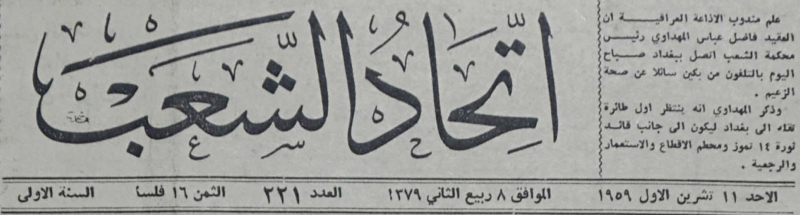 اتحاد الشعب
علم مندوب الاذاعة العراقية ان
العقيد فاضل عباس المهداوي رئيس
محكمة الشعب اتصل ببغداد صباح
اليوم بالتلفون من بكين سائلا عن صحة
الزعيم .
وذكر المهداوي انه ينتظر اول طائرة
تقله الى بغداد ليكون الى جانب قائد
ثورة ١٤ تموز ومحطم الاقطاع والاستعمار
والرجعية .
الاحد ١١ تشرين الاول ١٩٥٩ الموافق ٨ ربيع الثاني ١٣٧٩ العدد ٢٢١ الثمن ١٦ فلسا السنة الاولى